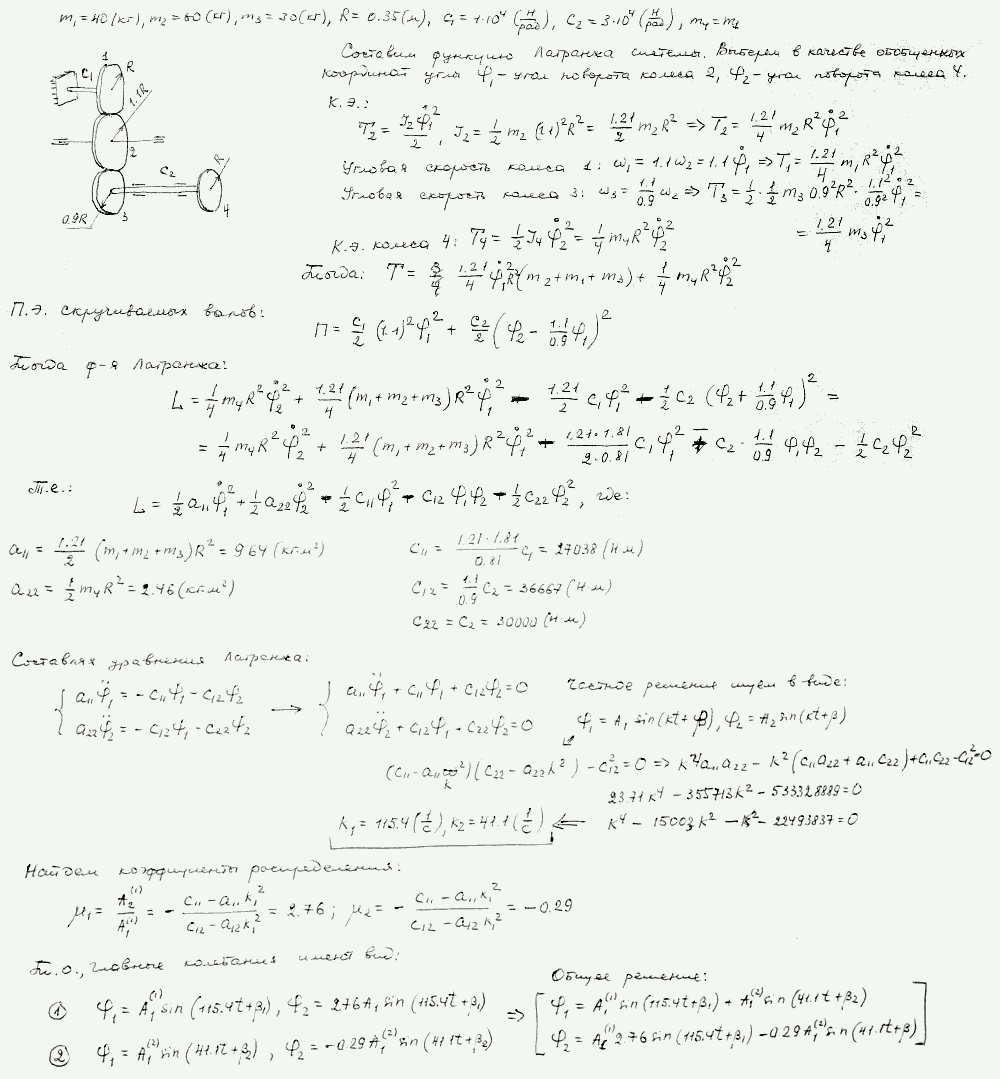 m₁ = 40 (кг), m₂ = 60 (кг), m₃ = 30 (кг), R = 0.35 (м), C₁ = 1·10⁴ (Н/рад), C₂ = 3·10⁴ (Н/рад), m₄ = m₁
Составим функцию Лагранжа системы. Выберем в качестве обобщенных
координат углы φ₁ - угол поворота колеса 2, φ₂ - угол поворота колеса 4.
1
C₁
R
1.1R
2
C₂
R
0.9R
3
4
К.Э.:
T₂ = J₂φ̇₁²/2, J₂ = 1/2 m₂ (1.1)²R² = 1.21/2 m₂R² => T₂ = 1.21/4 m₂R²φ̇₁²
Угловая скорость колеса 1: ω₁ = 1.1ω₂ = 1.1φ̇₁ => T₁ = 1.21/4 m₁R²φ̇₁²
Угловая скорость колеса 3: ω₃ = 1.1/0.9 ω₂ => T₃ = 1/2 · 1/2 m₃ 0.9²R² · 1.1²/0.9² φ̇₁² =
= 1.21/4 m₃φ̇₁²
К.Э. колеса 4: T₄ = 1/2 J₄φ̇₂² = 1/4 m₄R²φ̇₂²
Тогда: T = 1.21/4 φ̇₁²R²(m₂ + m₁ + m₃) + 1/4 m₄R²φ̇₂²
П.Э. скручиваемых валов:
П = C₁/2 (1.1)²φ₁² + C₂/2 (φ₂ - 1.1/0.9 φ₁)²
Тогда ф-я Лагранжа:
L = 1/4 m₄R²φ̇₂² + 1.21/4 (m₁+m₂+m₃)R²φ̇₁² - 1.21/2 C₁φ₁² - 1/2 C₂ (φ₂ + 1.1/0.9 φ₁)² =
= 1/4 m₄R²φ̇₂² + 1.21/4 (m₁+m₂+m₃)R²φ̇₁² - 1.21·1.81/2·0.81 C₁φ₁² - C₂ · 1.1/0.9 φ₁φ₂ - 1/2 C₂φ₂²
Т.е.:
L = 1/2 a₁₁φ̇₁² + 1/2 a₂₂φ̇₂² - 1/2 C₁₁φ₁² - C₁₂φ₁φ₂ - 1/2 C₂₂φ₂², где:
a₁₁ = 1.21/2 (m₁+m₂+m₃)R² = 9.64 (кг·м²)
C₁₁ = 1.21·1.81/0.81 C₁ = 27038 (Н·м)
a₂₂ = 1/2 m₄R² = 2.46 (кг·м²)
C₁₂ = 1.1/0.9 C₂ = 36667 (Н·м)
C₂₂ = C₂ = 30000 (Н·м)
Составляя уравнения Лагранжа:
{ a₁₁φ̈₁ = -C₁₁φ₁ - C₁₂φ₂ → { a₁₁φ̈₁ + C₁₁φ₁ + C₁₂φ₂ = 0 Частное решение ищем в виде:
{ a₂₂φ̈₂ = -C₁₂φ₁ - C₂₂φ₂ { a₂₂φ̈₂ + C₁₂φ₁ + C₂₂φ₂ = 0 φ₁ = A₁ sin(kt+β), φ₂ = A₂ sin(kt+β)
(C₁₁ - a₁₁k²)(C₂₂ - a₂₂k²) - C₁₂² = 0 => k⁴a₁₁a₂₂ - k²(C₁₁a₂₂ + a₁₁C₂₂) + C₁₁C₂₂ - C₁₂² = 0
23.71k⁴ - 355713k² - 533328889 = 0
k₁ = 115.4 (1/с), k₂ = 41.1 (1/с) <= k⁴ - 15003k² - 22493837 = 0
Найдем коэффициенты распределения:
μ₁ = A₂⁽¹⁾/A₁⁽¹⁾ = - (C₁₁ - a₁₁k₁²)/(C₁₂ - a₁₂k₁²) = 2.76; μ₂ = - (C₁₁ - a₁₁k₁²)/(C₁₂ - a₁₂k₁²) = -0.29
Т.о., главные колебания имеют вид:
Общее решение:
① φ₁ = A₁⁽¹⁾ sin(115.4t+β₁), φ₂ = 2.76A₁ sin(115.4t+β₁) => [ φ₁ = A₁⁽¹⁾ sin(115.4t+β₁) + A₁⁽²⁾ sin(41.1t+β₂)
② φ₁ = A₁⁽²⁾ sin(41.1t+β₂), φ₂ = -0.29A₁⁽²⁾ sin(41.1t+β₂) φ₂ = A₁⁽¹⁾ 2.76 sin(115.4t+β₁) - 0.29A₁⁽²⁾ sin(41.1t+β) ]